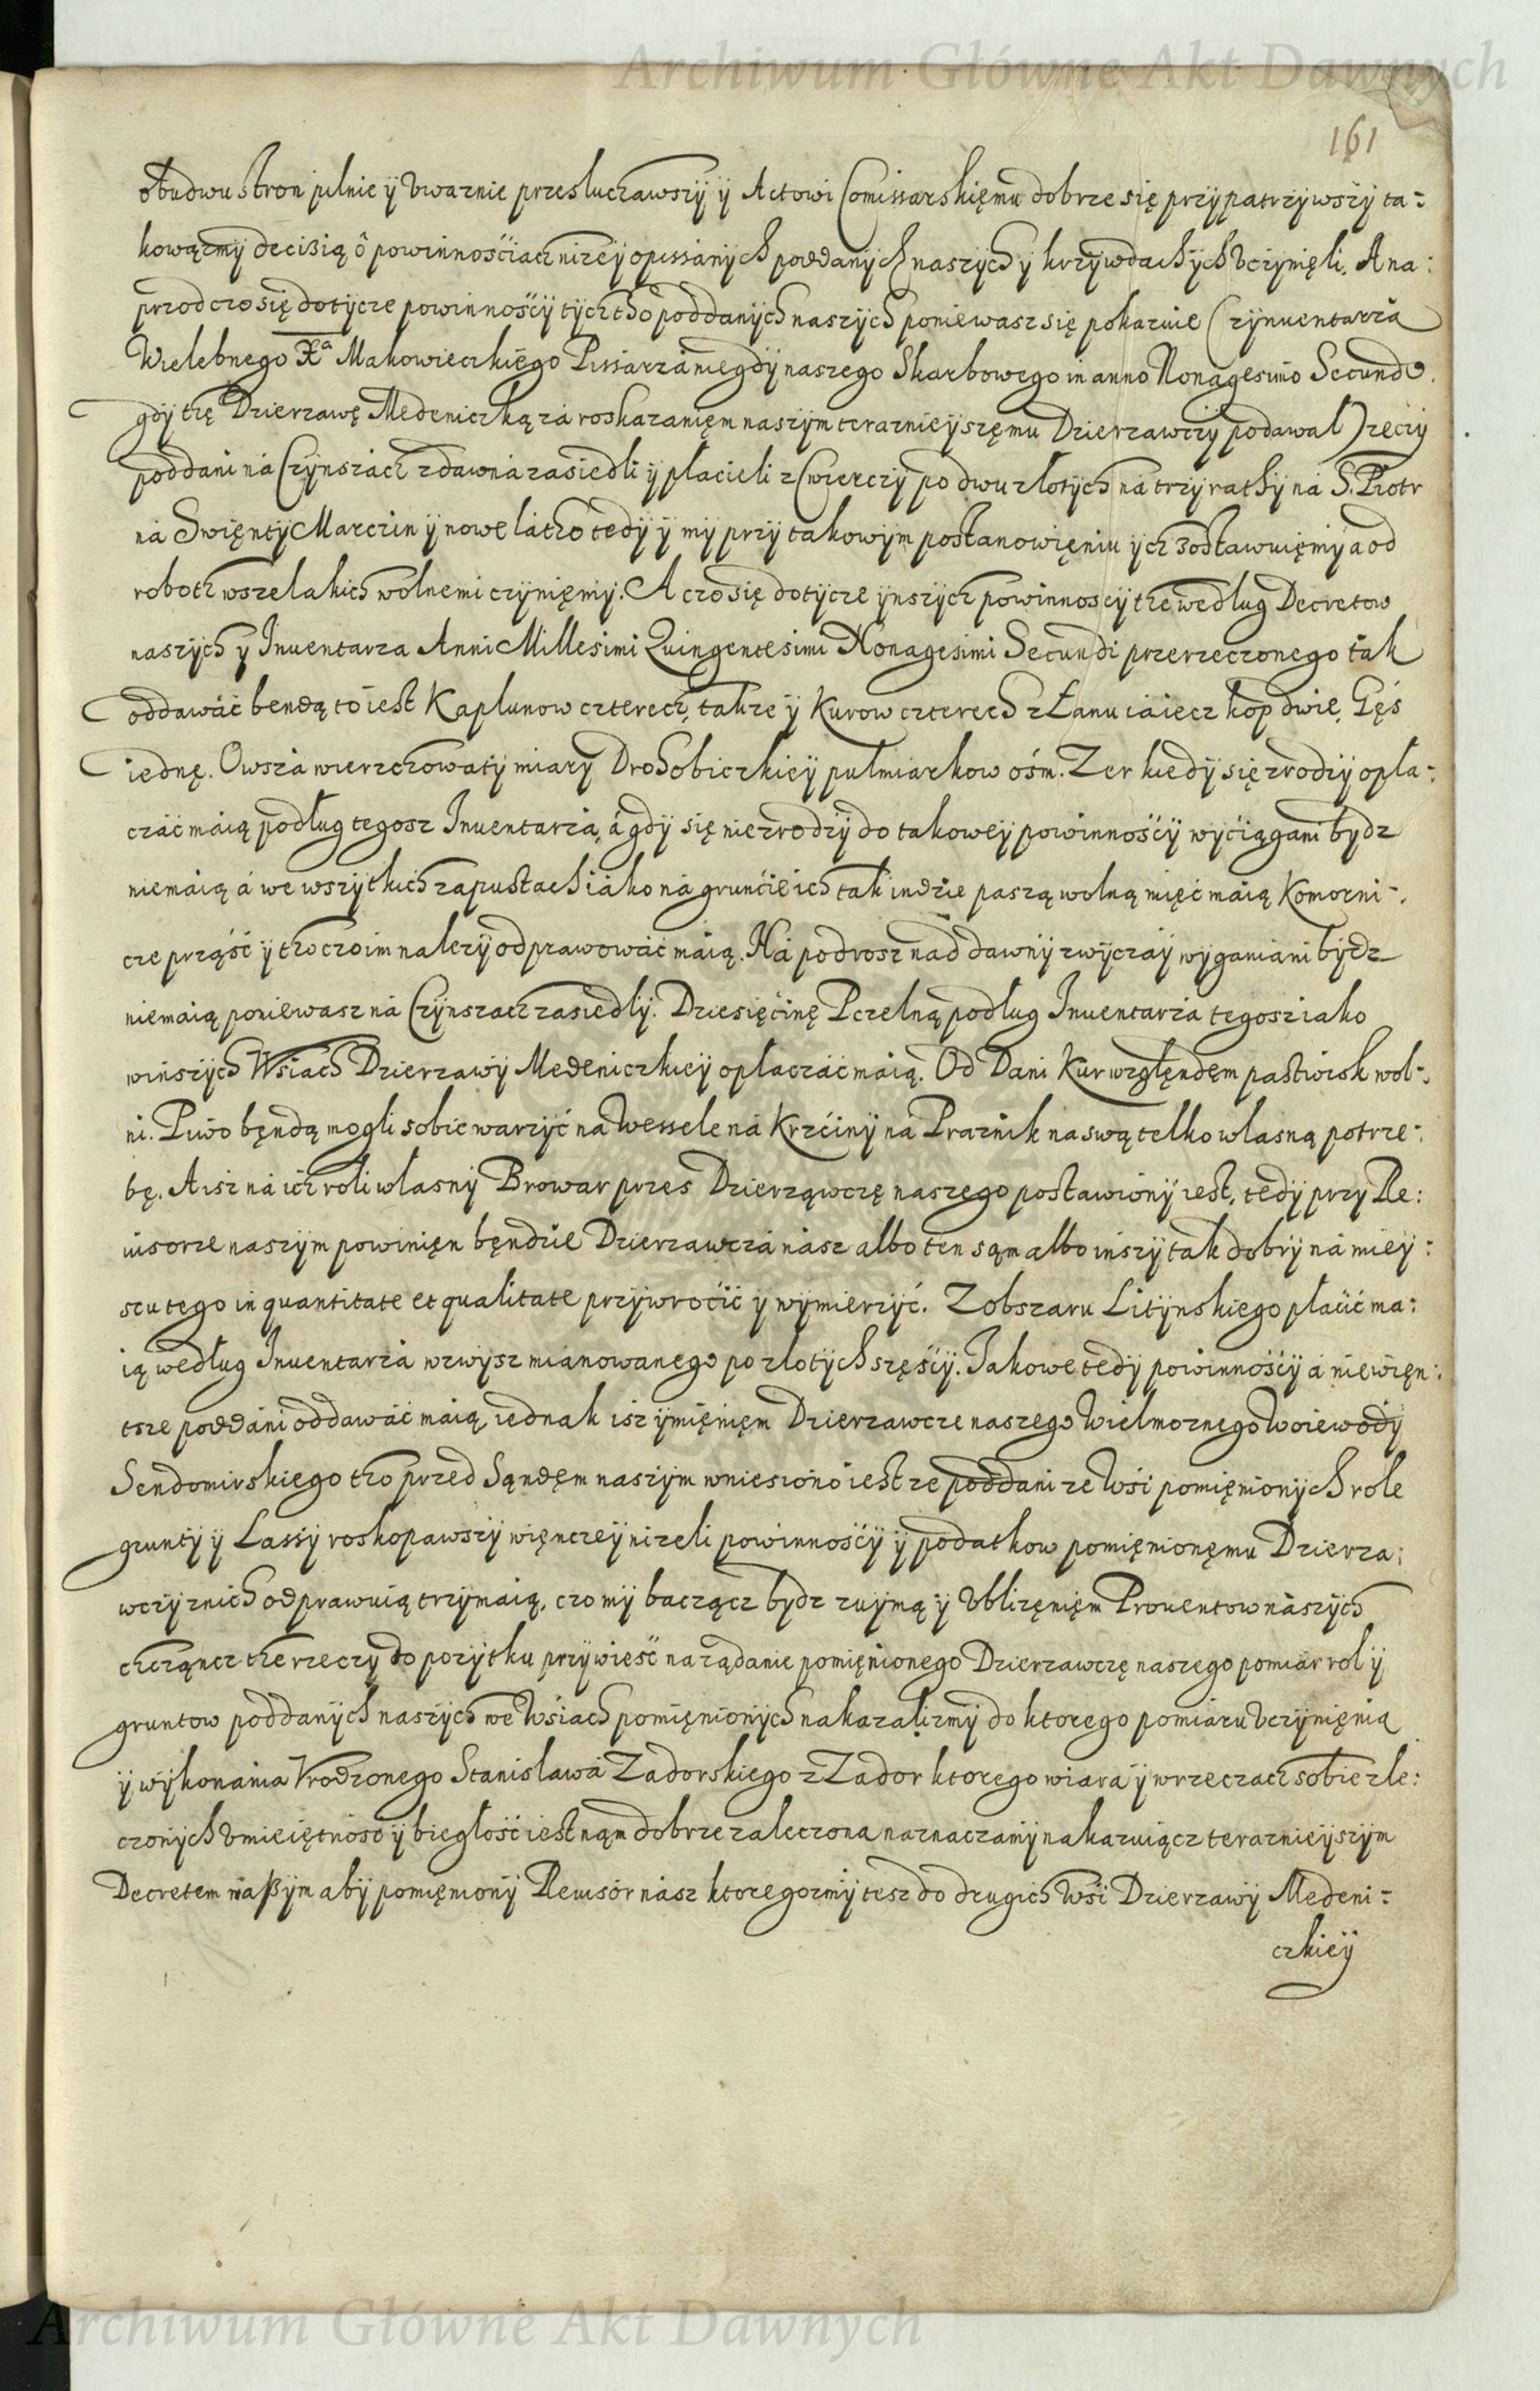 Archiwum Główne Akt Dawnych
161
obudwu stron pilnie ÿ Vwaznie przesłuchawszÿ ÿ Actowi Comissarskięmu dobrze się przÿpatrzÿwszÿ ta:
kowązmÿ decisią ô powinnosciach nizeÿ opissánÿch poddanÿch naszÿch ÿ krzÿwdach ÿch Vczÿnięli. A na:
przod czo się dotÿcze powinnoscÿ tÿchtho poddanÿch naszÿch poniewasz się pokazuie (zÿnuentarzá
Wielebnego Xᵃ Makowieczkiego Pissarzá niegdÿ naszego Skarbowego in anno Nonagesimo Secundo.
gdÿ thę Dzierzawę Medeniczką zá roskazanięm naszÿm terazniejszęmu Dzierzawczÿ podawał) zeczÿ
poddani ná Czÿnszach zdawná zasiedli ÿ płacieli z Cwierczÿ po dwu złotÿch ná trzÿ rathÿ ná S. Piotr
ná Swięntÿ Marczin ÿ nowe latho tedÿ ÿ mÿ przÿ takowÿm postanowięniu ÿch zostawuięmÿ a od
roboth wszelakich wolnemi czÿnięmÿ. A czo się dotÿcze ÿnszÿch powinnoscÿ the według Decretow
naszÿch ÿ Inuentarza Anni Millesimi Quingentesimi Nonagesimi Secundi przerzeczonego ták
oddawáć bendą to iest Kapłunow czterech, takze ÿ Kurow czterech z Łanu iáiecz kop dwie, Gęś
iednę. Owsza wierzchowatÿ miarÿ Drohobiczkieÿ pułmiarkow ośm. Zer kiedÿ się zrodzÿ opła:
czáć máią podług tegosz Inuentarzá, á gdÿ się niezrodzÿ do takoweÿ powinnoścÿ wÿciągani bÿdz
niemáią á we wszÿtkich zapustach iáko ná gruncie ich tak indzie paszą wolną mięć máią Komorni:
cze prząść ÿ tho czo im nalezÿ odprawowáć máią. Ná podrosz nad dawnÿ zwÿczáÿ wÿganiani bÿdz
niemáią poniewasz ná Czÿnszach zasiedlÿ. Dziesięcinę Pczelną podług Inuentarzá tegosz iako
winszÿch Wsiach Dzierzawÿ Medeniczkieÿ opłaczáć máią. Od Dani Kur względęm pastwisk wol:
ni. Piwo będą mogli sobie warzÿć na Wessele ná Krzcinÿ na Praznik na swą telko własną potrze:
bę. A isz ná ich roli własnÿ Browar przes Dzierząwczę naszego postawionÿ iest, tedÿ przÿ Re:
uisorze naszÿm powinięn będzie Dzierzawczá nász albo ten sąm albo inszÿ tak dobrÿ ná mieÿ:
scu tego in quantitate et qualitate przÿwrocić ÿ wÿmierzÿć. Z obszaru Litÿnskiego płacić ma:
ią według Inuentarzá wzwÿsz mianowanego po złotÿch szęścÿ. Jakowe tedÿ powinnoścÿ á niewięn:
tsze poddáni oddawáć máią, iednak isz ÿmięnięm Dzierzawcze naszego Wielmoznego Woiewodÿ
Sendomirskiego tho przed Sąndęm naszÿm wniesiono iest ze poddani ze Wsi pomięnionÿch role
gruntÿ ÿ Lassÿ roskopawszÿ więnczeÿ nizeli powinnoścÿ ÿ podatkow pomięnionęmu Dzierza:
wczÿ znich odprawuią trzÿmáią, czo mÿ bacząc bÿdz zuÿmą ÿ Vblizęnięm Prouentow nászÿch
chcząncz the rzeczÿ do pozÿtku przÿwieść na ządanie pomięnionego Dzierzawczę naszego pomiár rol ÿ
gruntow poddanÿch naszÿch we Wsiach pomięnionÿch nakazalizmÿ do ktorego pomiáru Vczÿnięnia
ÿ wÿkonania Vrodzonego Stanisława Zadorskiego z Zador ktorego wiara ÿ wrzeczach sobie zle:
czonÿch Vmieiętność ÿ biegłość iest nąm dobrze zaleczona naznaczamÿ nakazuiącz teraznieÿszÿm
Decretem naßÿm abÿ pomięnionÿ Reuisór nász ktoregozmÿ tesz do drugich Wsi Dzierzawÿ Medeni:
czkieÿ
Archiwum Główne Akt Dawnych